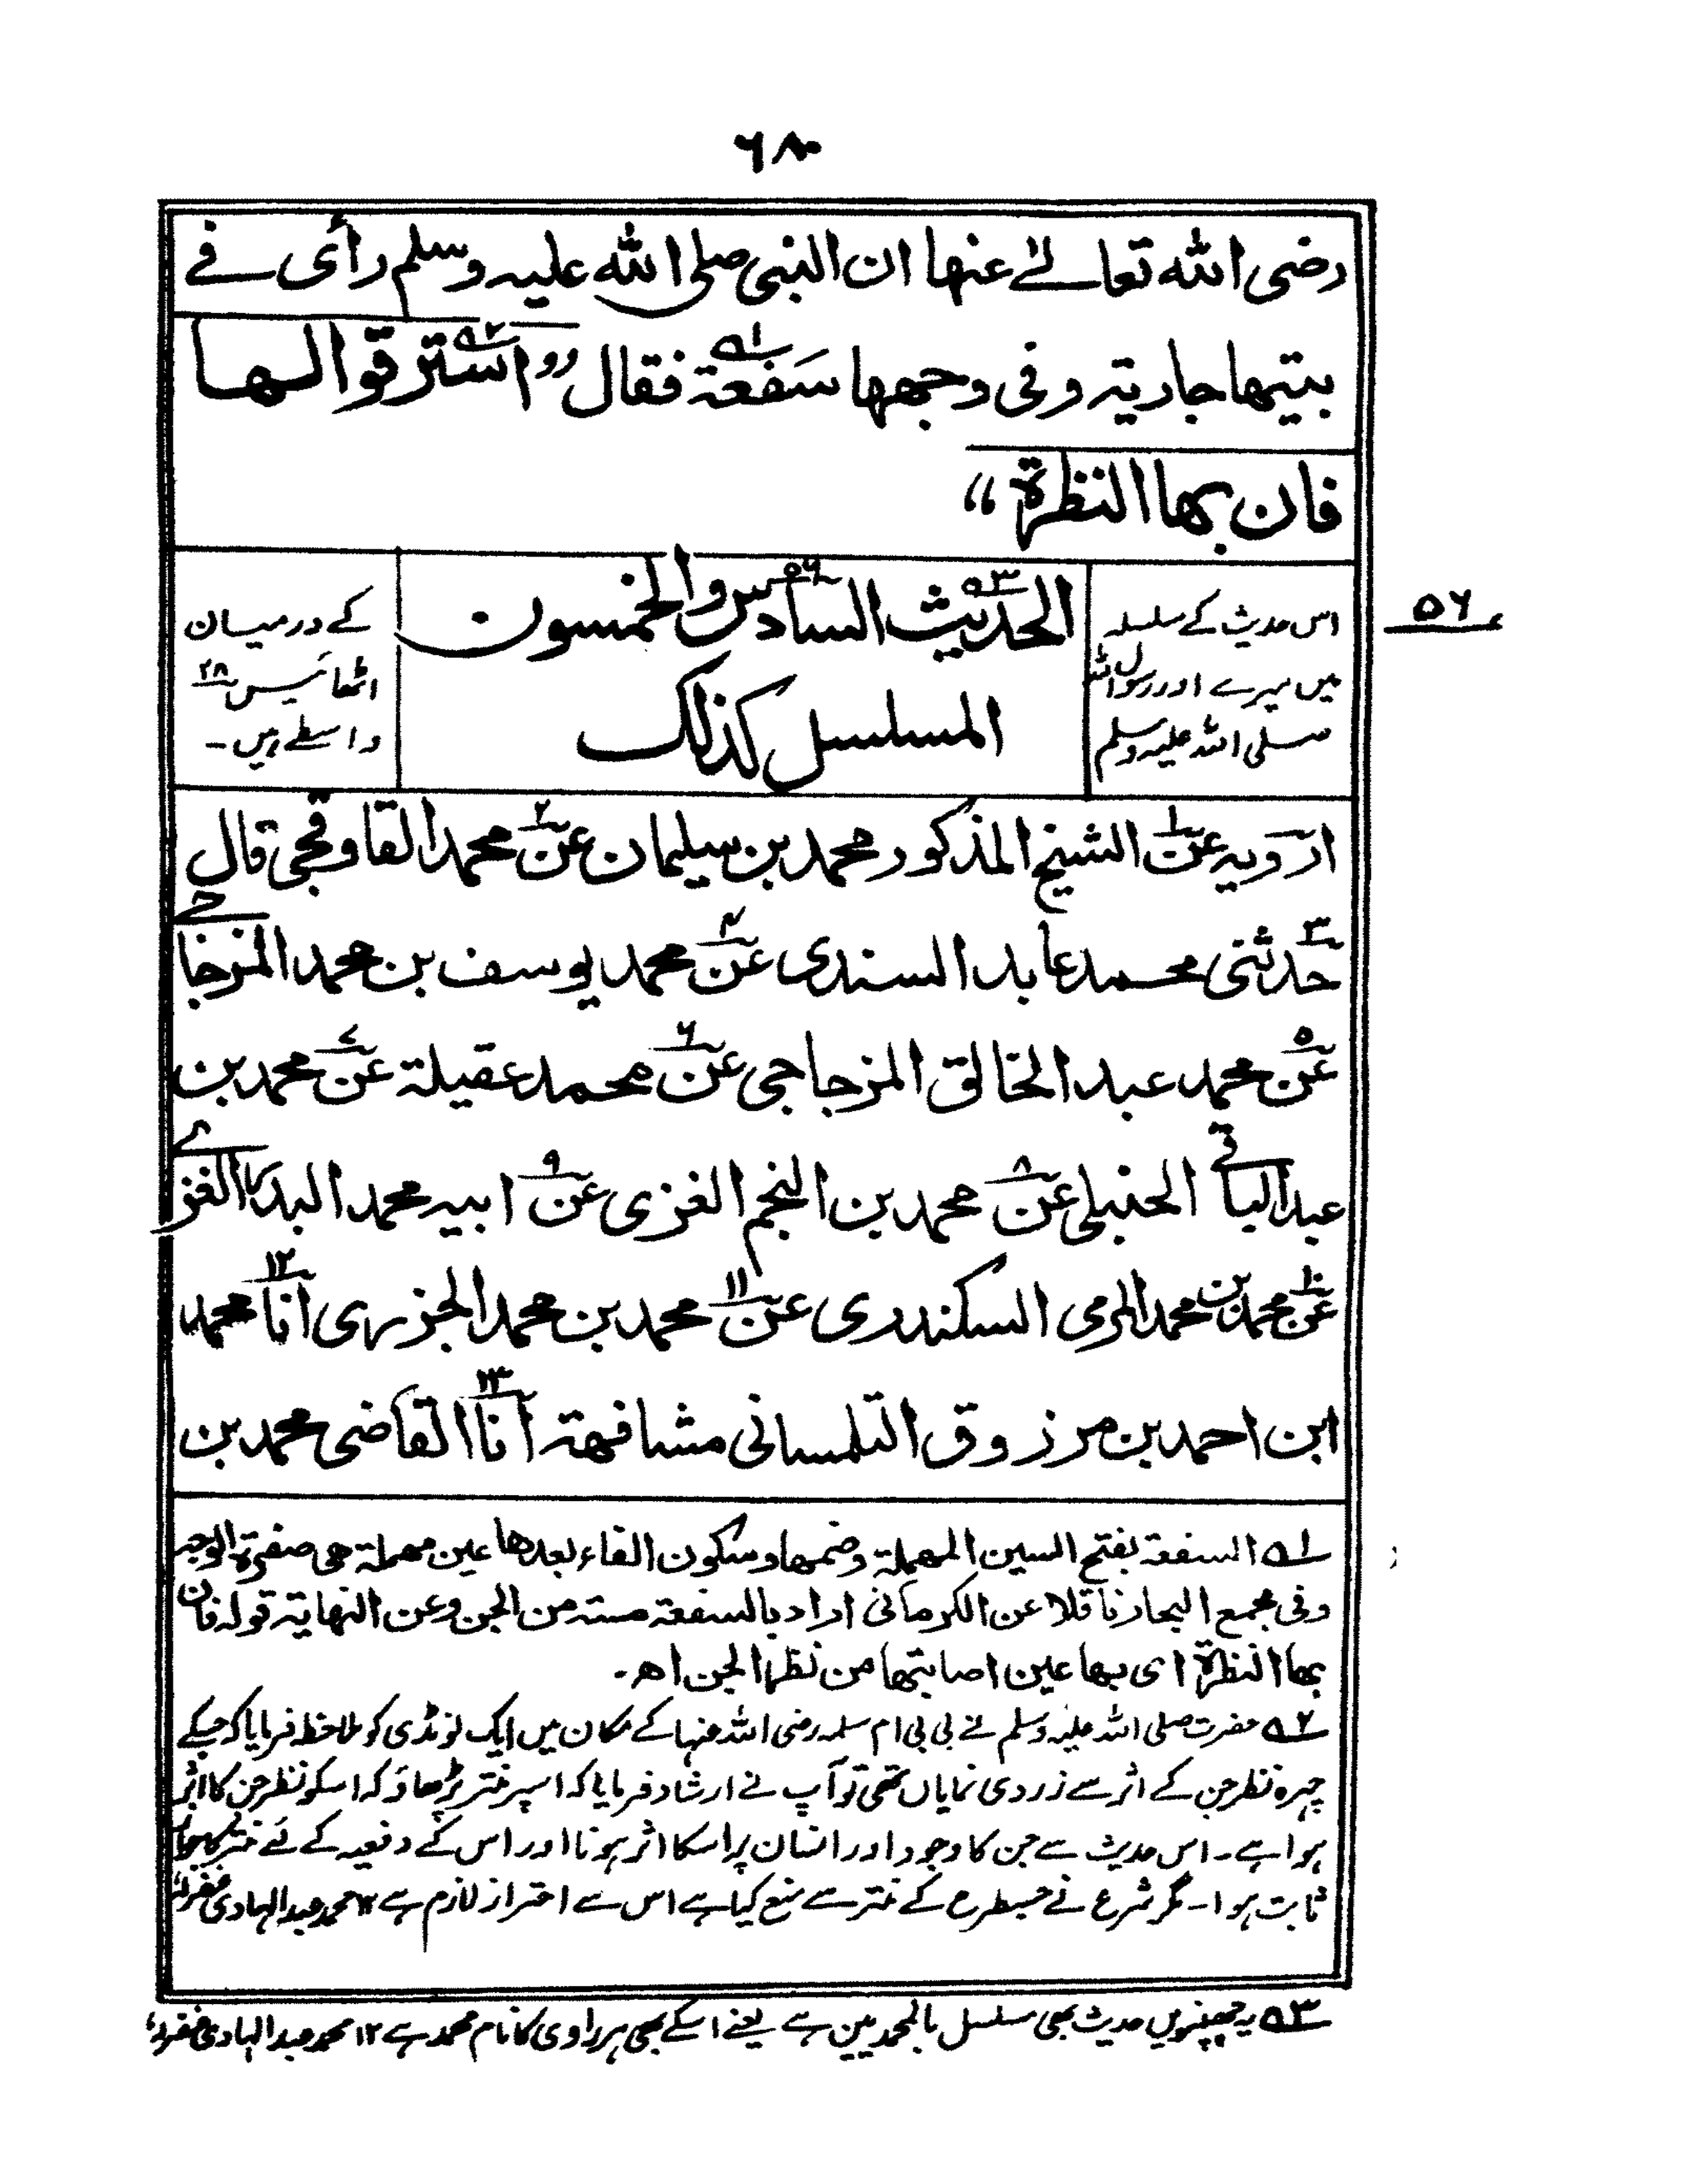 ۶۸۰
رضی الله تعالےٰ عنها ان النبی صلی الله علیه وسلم رأی فے
بیتها جاریة وفی وجهها سَفعة۱؎ فقال «استرقوا۲؎ لها
فان بها النظرة»
۵۶
اس حدیث کے سلسلہ
میں میرے اور رسول اللہ
صلی اللہ علیہ وسلم
الحدیث۳؎ السادس۵۶ والخمسون
المسلسل کذلک
کے درمیان
اٹھائیس ۲۸
واسطے ہیں۔
ارویه عن۱ الشیخ المذکور محمد بن سلیمان عن۲ محمد القاوقجی قال
حدثنی۳ محمد عابد السندی عن۴ محمد یوسف بن محمد المزجاجے
عن۵ محمد عبد الخالق المزجاجی عن۶ محمد عقیلة عن۷ محمد بن
عبد الباقی الحنبلی عن۸ محمد بن النجم الغزی عن۹ ابیه محمد البدر الغزے
عن۱۰ محمد بن محمد المرمی السکندری عن۱۱ محمد بن محمد الجزری انا۱۲ محمد
ابن احمد بن مرزوق التلمسانی مشافهة انا۱۳ القاضی محمد بن
۱؎ السفعة بفتح السین المهملة وضمها وسکون الفاء بعدها عین مهملة هی صفرة الوجه
وفی مجمع البحار ناقلا عن الکرمانی اراد بالسفعة مسته من الجن وعن النهایة قوله فان
بها النظرة ای بها عین اصابتها من نظر الجن اھ۔
۲؎ حضرت صلی اللہ علیہ وسلم نے بی بی ام سلمہ رضی اللہ عنہا کے مکان میں ایک لونڈی کو ملاحظہ فرمایا کہ جسکے
چہرہ نظر جن کے اثر سے زردی نمایاں تھی تو آپ نے ارشاد فرمایا کہ اسپر منتر پڑھاؤ کہ اسکو نظر جن کا اثر
ہوا ہے۔ اس حدیث سے جن کا وجود اور انسان پر اسکا اثر ہونا اور اس کے دفعیہ کے لئے منتر کا جواز
ثابت ہوا۔ مگر شرع نے جسطرح کے منتر سے منع کیا ہے اس سے احتراز لازم ہے ۱۲ محمد عبد الہادی غفرلہ
۳؎ یہ چھپنویں حدیث بھی مسلسل بالمحمدیین ہے یعنے اسکے بھی ہر راوی کا نام محمد ہے ۱۲ محمد عبد الہادی غفرلہ